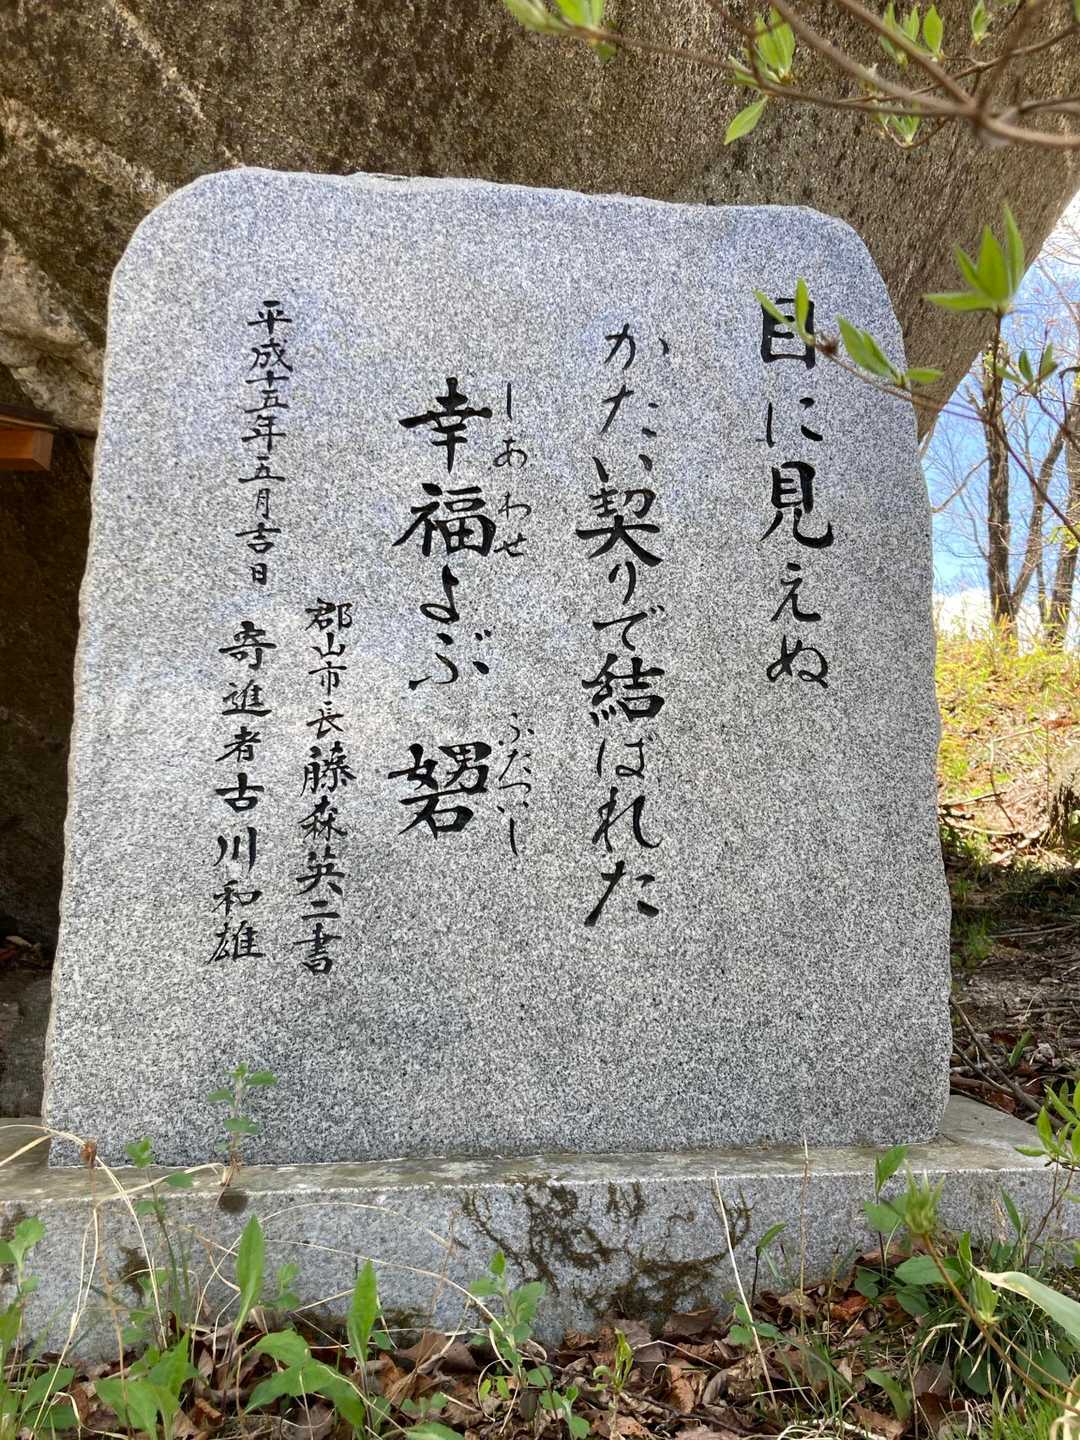 目に見えぬ
かたい契りで結ばれた
しあわせ ふたついし
幸福よぶ
郡山市長 藤森英二書
平成十五年五月吉日
寄進者 古川和雄